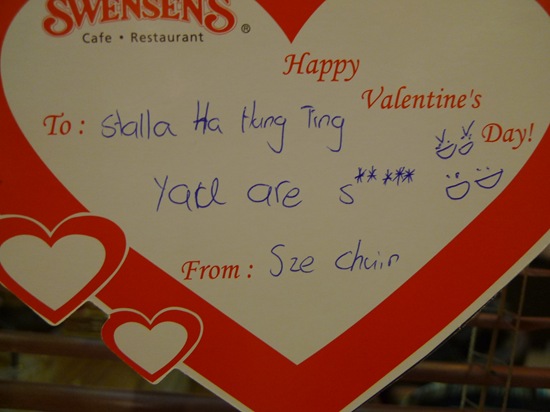 SWENSEN'S ®
Cafe • Restaurant
Happy
Valentine's
Day!
To : Stalla Ha Hung Ting
are s** ***
From : Sze Chuin